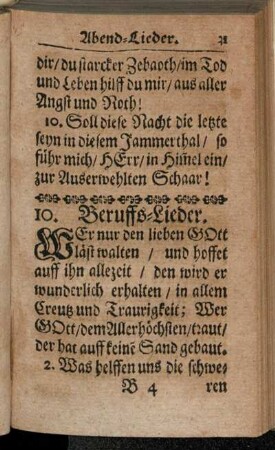 Abend-Lieder. 31
dir/du starcker Zebaoth/im Tod
und Leben hilff du mir/aus aller
Angst und Noth!
10. Soll diese Nacht die letzte
seyn in diesem Jammerthal/ so
führ mich/HErr/in Him̃el ein/
zur Auserwehlten Schaar!
10. Beruffs-Lieder.
WEr nur den lieben GOtt
läst walten / und hoffet
auff ihn allezeit / den wird er
wunderlich erhalten / in allem
Creutz und Traurigkeit; Wer
GOtt/dem Allerhöchsten/traut/
der hat auff keinẽ Sand gebaut.
2. Was helffen uns die schwe-
B 4 ren